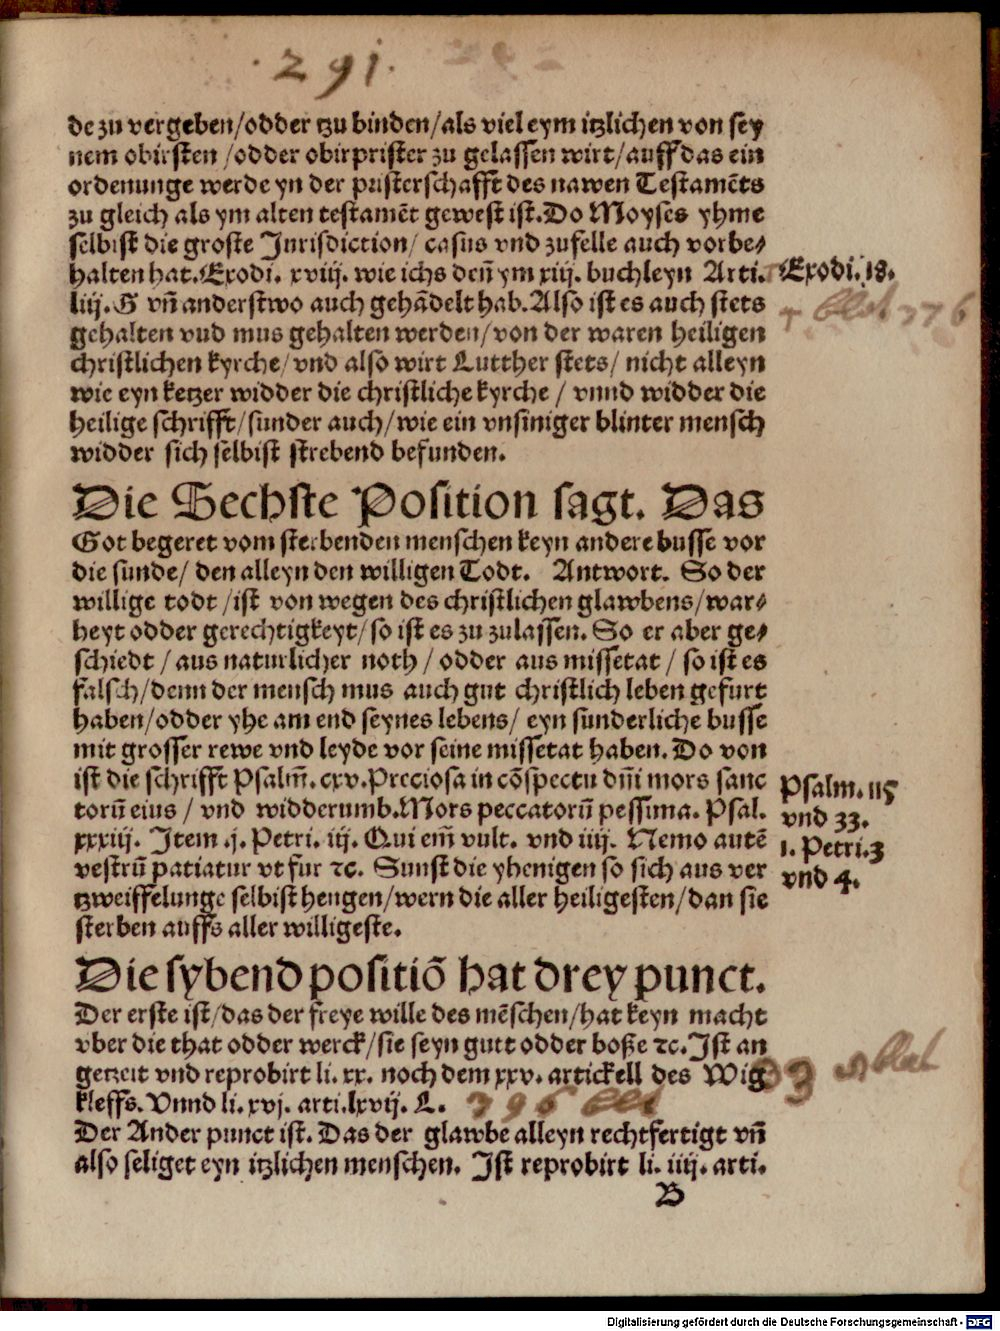 . 291.
de zu vergeben/odder tzu binden/als viel eym itzlichen von sey
nem obirsten /odder obirprister zu gelassen wirt/auff das ein
ordenunge werde yn der pristerschafft des nawen Testamēts
zu gleich als ym alten testamēt gewest ist.Do Moyses yhme
selbist die groste Jurisdiction/ casus vnd zufelle auch vorbe⸗
halten hat.Exodi. xviij. wie ichs den̄ ym xiij. buchleyn Arti.
Exodi. 18.
liij. G vn̄ anderstwo auch gehādelt hab.Also ist es auch stets
blat 376
gehalten vnd mus gehalten werden/von der waren heiligen
christlichen kyrche/vnd also wirt Lutther stets/ nicht alleyn
wie eyn ketzer widder die christliche kyrche / vnnd widder die
heilige schrifft/sunder auch/wie ein vnsiniger blinter mensch
widder sich selbist strebend befunden.
Die Sechste Position sagt. Das
Got begeret vom sterbenden menschen keyn andere busse vor
die sunde/ den alleyn den willigen Todt. Antwort. So der
willige todt /ist von wegen des christlichen glawbens/war⸗
heyt odder gerechtigkeyt/so ist es zu zulassen. So er aber ge⸗
schiedt / aus naturlicher noth / odder aus missetat / so ist es
falsch/denn der mensch mus auch gut christlich leben gefurt
haben/odder yhe am end seynes lebens/ eyn sunderliche busse
mit grosser rewe vnd leyde vor seine missetat haben. Do von
ist die schrifft Psalm̄. cxv. Preciosa in cōspectu dn̄i mors sanc
Psalm. 115
torū eius / vnd widderumb.Mors peccatorū pessima. Psal.
vnd 33.
xxxiij. Item .j. Petri. iij. Qui em̄ vult. vnd iiij. Nemo autē
1. Petri.3
vestrū patiatur vt fur ⁊c. Sunst die yhenigen so sich aus ver
vnd 4.
tzweiffelunge selbist hengen/wern die aller heiligesten/dan sie
sterben auffs aller willigeste.
Die sybend positiō hat drey punct.
Der erste ist/das der freye wille des mēschen/hat keyn macht
vber die that odder werck/sie seyn gutt odder boße ⁊c. Ist an
getzeit vnd reprobirt li. xx. noch dem xxv. artickell des Wig
33 blat
kleffs. Vnnd li. xvj. arti.lxvij. L. 396 blt
Der Ander punct ist. Das der glawbe alleyn rechtfertigt vn̄
also seliget eyn itzlichen menschen. Ist reprobirt li. iiij. arti.
B
Digitalisierung gefördert durch die Deutsche Forschungsgemeinschaft - DFG